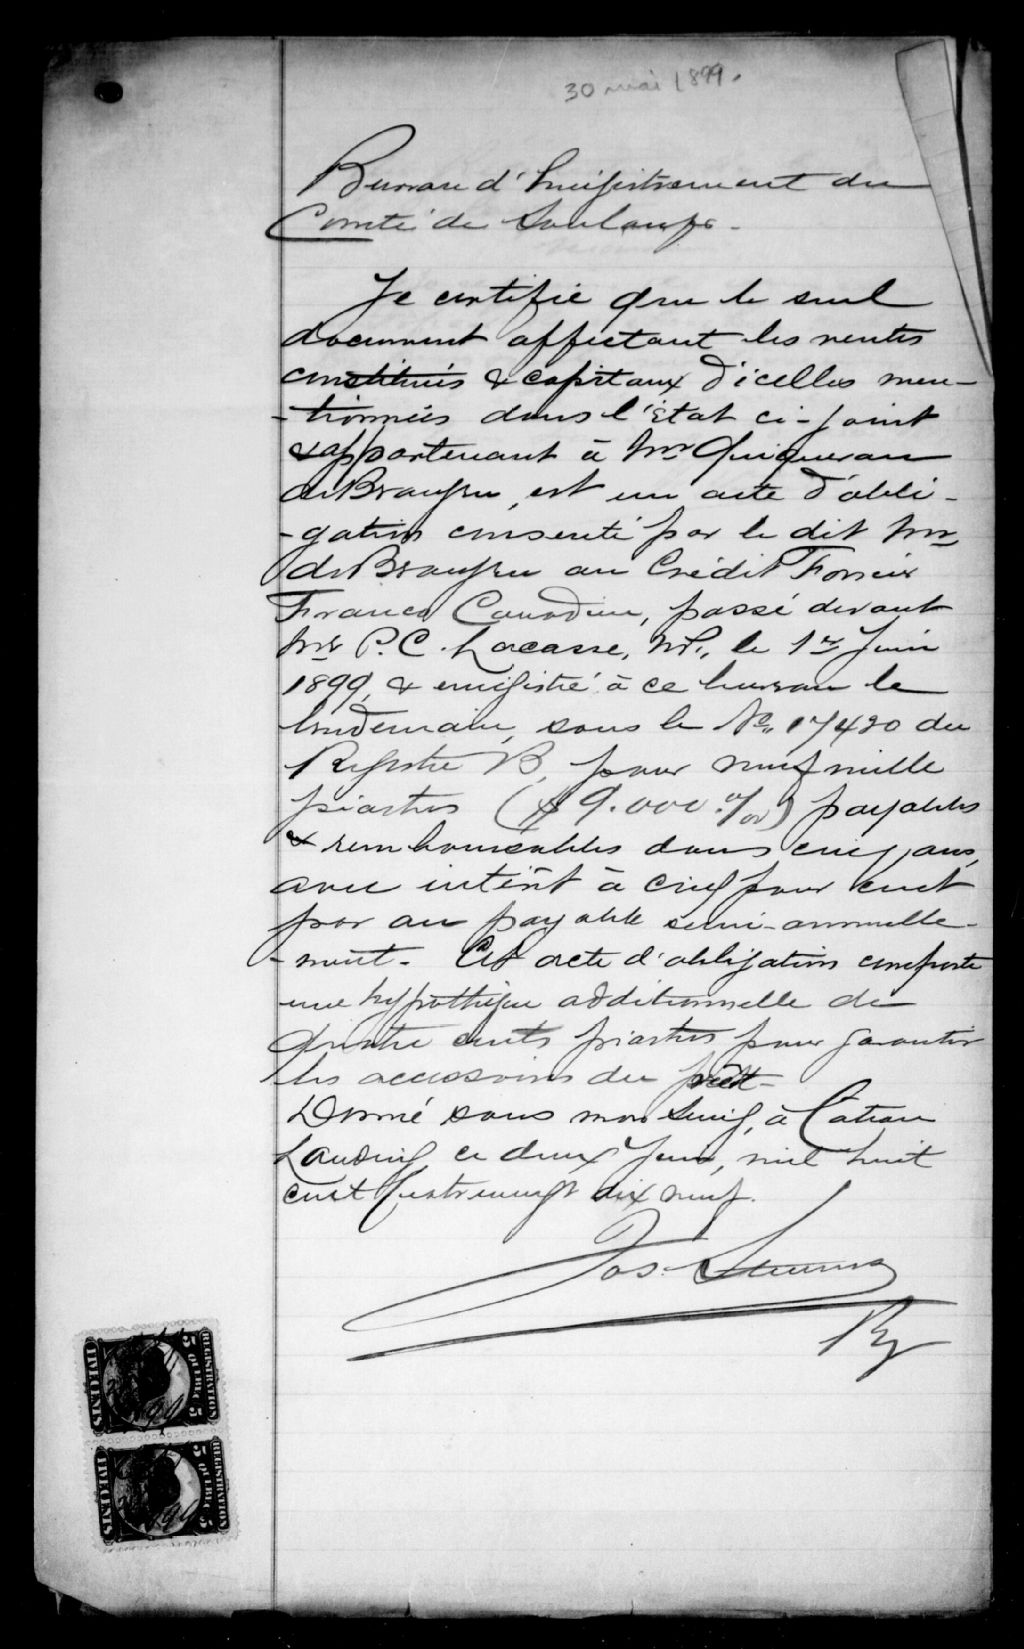 30 mai 1899.
Bureau d'Enregistrement du
Comté de Soulanges.
Je certifie que le seul
document affectant les rentes
constituées & capitaux d'icelles men-
-tionnées dans l'État ci-joint
& appartenant à Mr Quiqueran
de Beaujeu, est un acte d'obli-
-gation consenti par le dit Mr
de Beaujeu au Crédit Foncier
Franco Canadien, passé devant
Mr P. C. Lacasse, N.P., le 1er Juin
1899, & enregistré à ce bureau le
lendemain, sous le No. 17420 du
Registre B, pour neuf mille
piastres ($9.000.%) payables
& remboursables dans cinq ans,
avec intérêt à cinq pour cent
par an payable semi-annuelle-
-ment. Cet acte d'obligation comporte
une hypothèque additionnelle de
quatre cents piastres pour garantir
les accessoires du prêt-
Donné sous mon seing, à Coteau
Landing ce deux Juin, mil huit
cent quatrevingt dix neuf.
Jos.
Rg
REGISTRATION
5 QUEBEC 5
FIVE CENTS
REGISTRATION
5 QUEBEC 5
FIVE CENTS